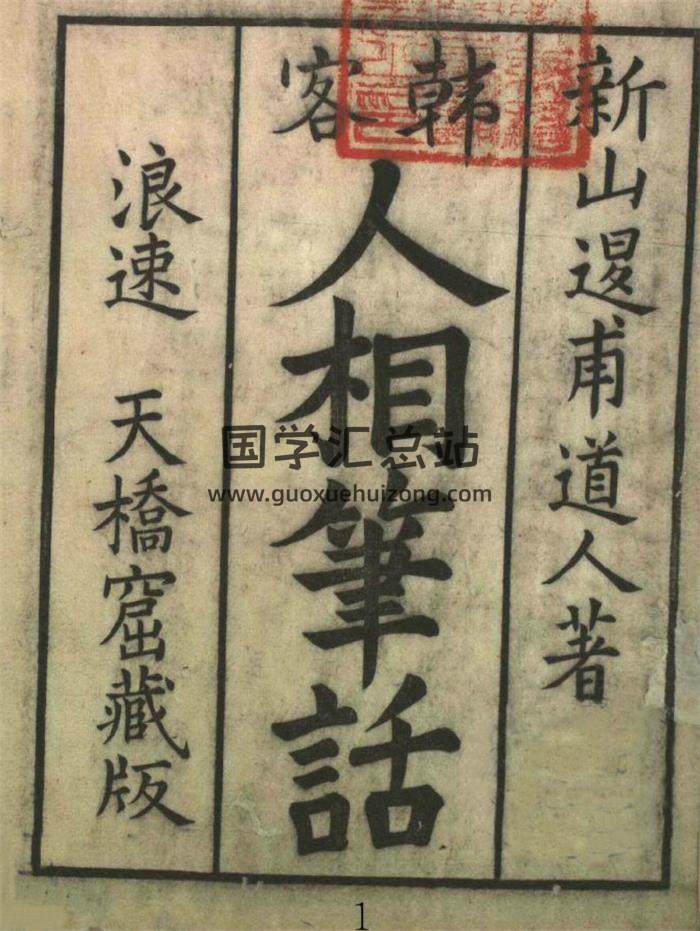 新山退甫道人著
韓客
人相筆話
浪速 天橋窟藏版
国学汇总站
www.guoxuehuizong.com
1